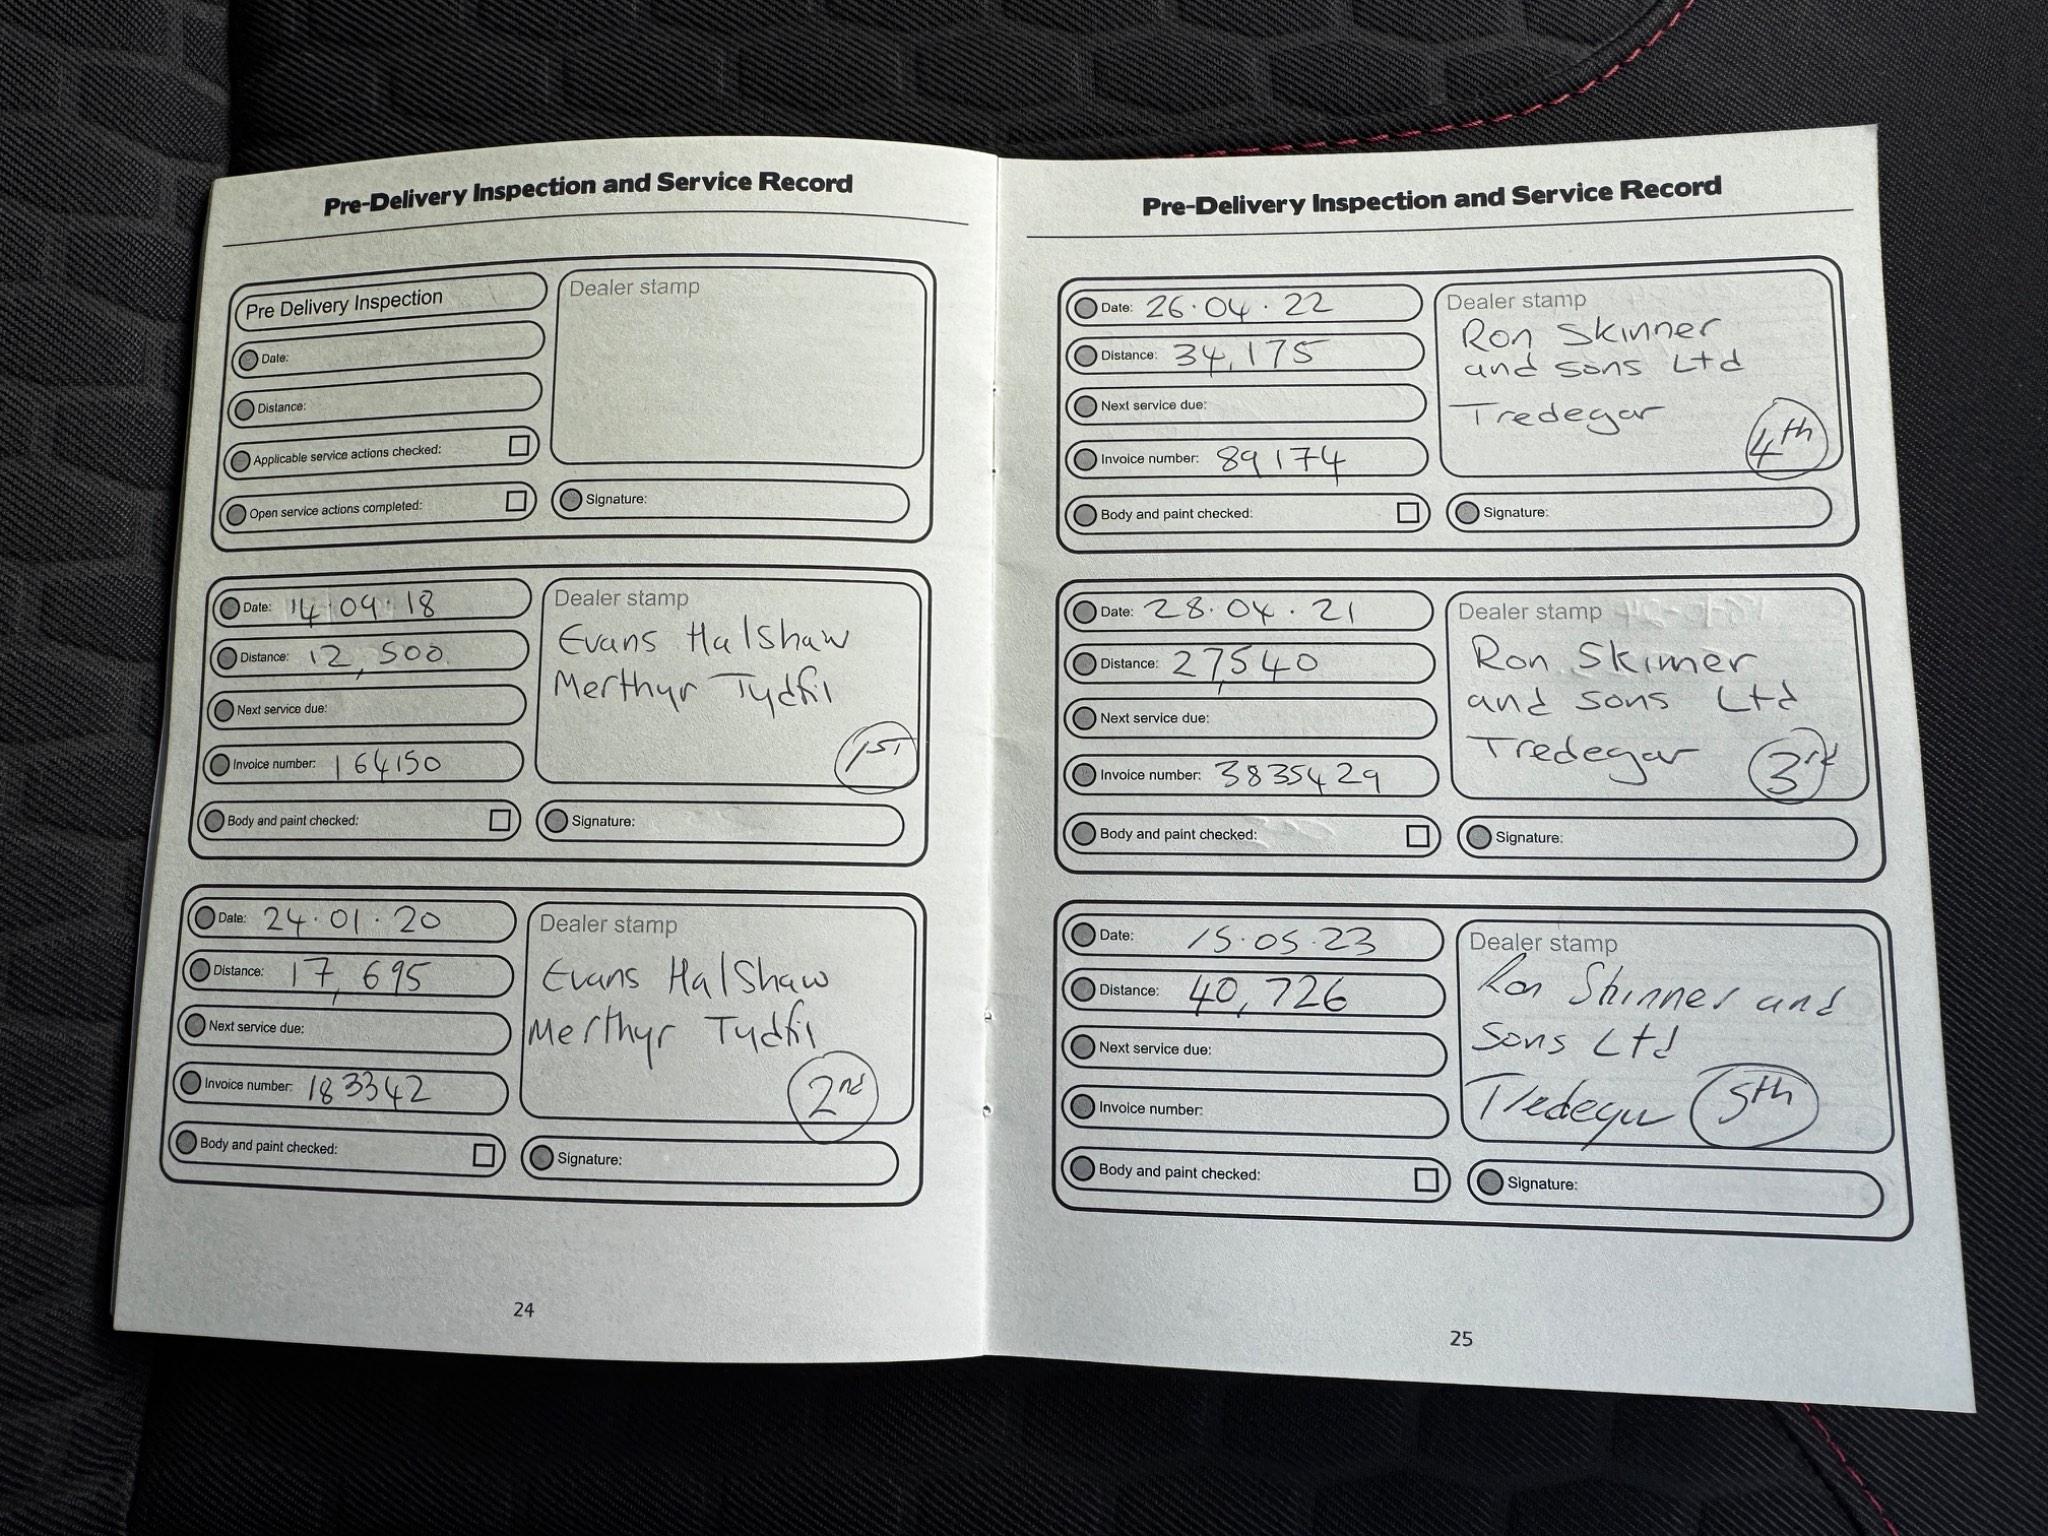 Pre-Delivery Inspection and Service Record
Pre Delivery Inspection
Date:
Distance:
Applicable service actions checked:
Open service actions completed:
Dealer stamp
Signature:
Date: 14.09.18
Distance: 12,500
Next service due:
Invoice number: 164150
Body and paint checked:
Dealer stamp
Evans Halshaw
Merthyr Tydfil
1ST
Signature:
Date: 24.01.20
Distance: 17,695
Next service due:
Invoice number: 183342
Body and paint checked:
Dealer stamp
Evans Halshaw
Merthyr Tydfil
2nd
Signature:
24
Pre-Delivery Inspection and Service Record
Date: 26.04.22
Distance: 34,175
Next service due:
Invoice number: 89174
Body and paint checked:
Dealer stamp
Ron Skinner
and sons Ltd
Tredegar
4th
Signature:
Date: 28.04.21
Distance: 27,540
Next service due:
Invoice number: 3835429
Body and paint checked:
Dealer stamp
Ron Skinner
and sons Ltd
Tredegar
3rd
Signature:
Date: 15.05.23
Distance: 40,726
Next service due:
Invoice number:
Body and paint checked:
Dealer stamp
Ron Skinner and
Sons Ltd
Tredegar
5th
Signature:
25